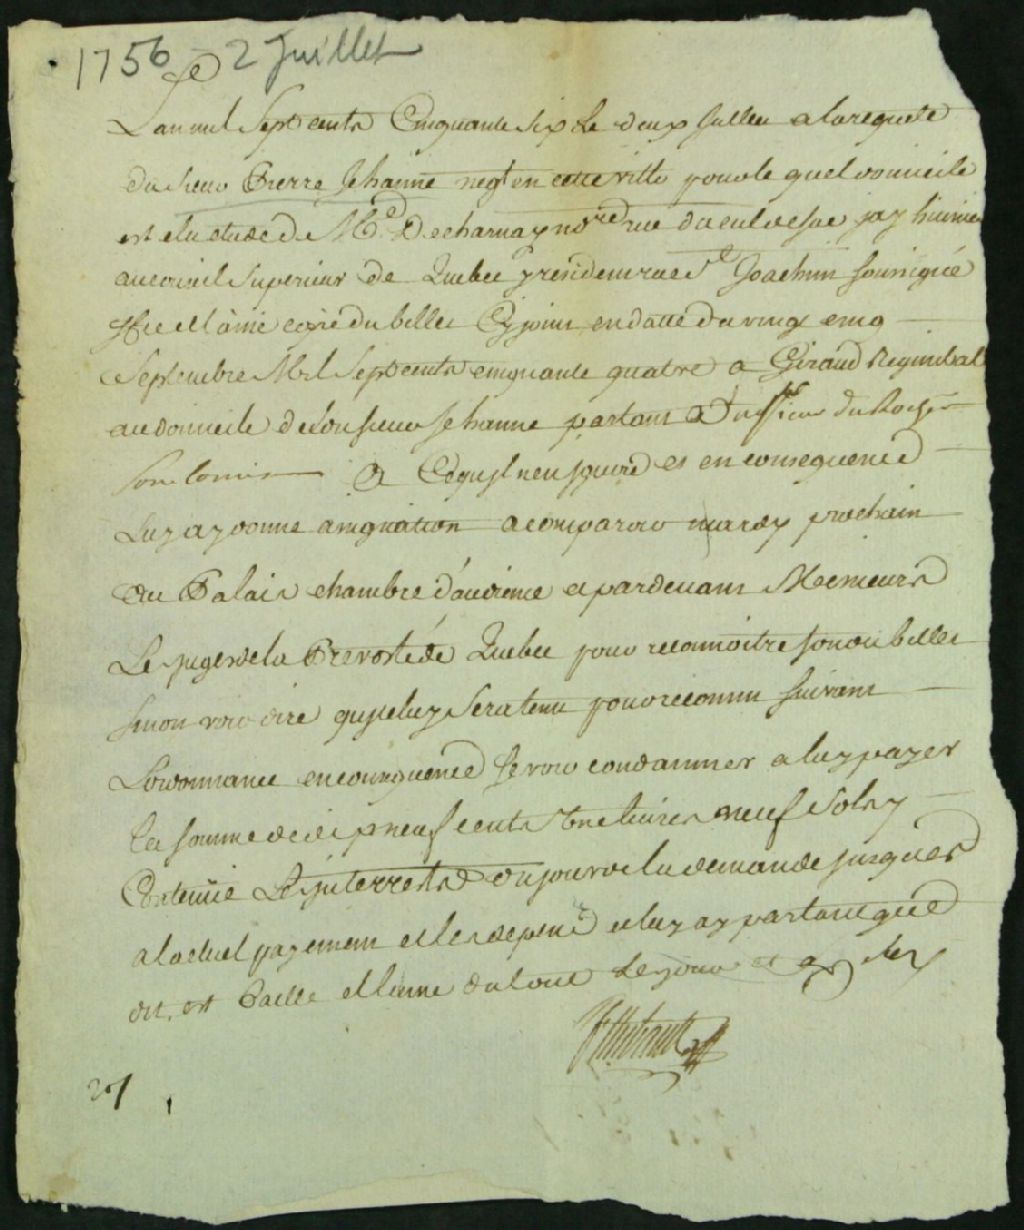 1756 2 Juillet
Le
Lan mil Sept cents Cinquante six Le deux Juillet a la requete
du sieur Pierre Jehanne negt en cette ville pour le quel domicile
est elu etude de Me Decharnay nore rue du cul de sac jay huissier
au conseil Superieur de Quebec y residant rue St Joachim soussigné
copie du billet Cy joint en datte du vingt cinq
Septembre Mil Sept cents cinquante quatre a Giraud
au domicile de son sieur Jehanne partant a
a Ce quil nen ignore et en consequence
Luy ay donné assignation a comparoir mardy prochain
au Palais chambre d'audience et pardevant Messieurs
Les juges de la Prevosté de Quebec pour reconnoitre son dit billet
sinon voir dire quil luy Sera tenu pour reconnu suivant
Lordonnance en consequence Se voir condamner a luy payer
la somme de dix neuf cents livres neuf Sols y
Contenüe Les interrests du jour de la demande jusques
a lactuel payement et les depens et luy ay parlant que
dit est Baillé et Laissé dutout Les jour et an
Thibault